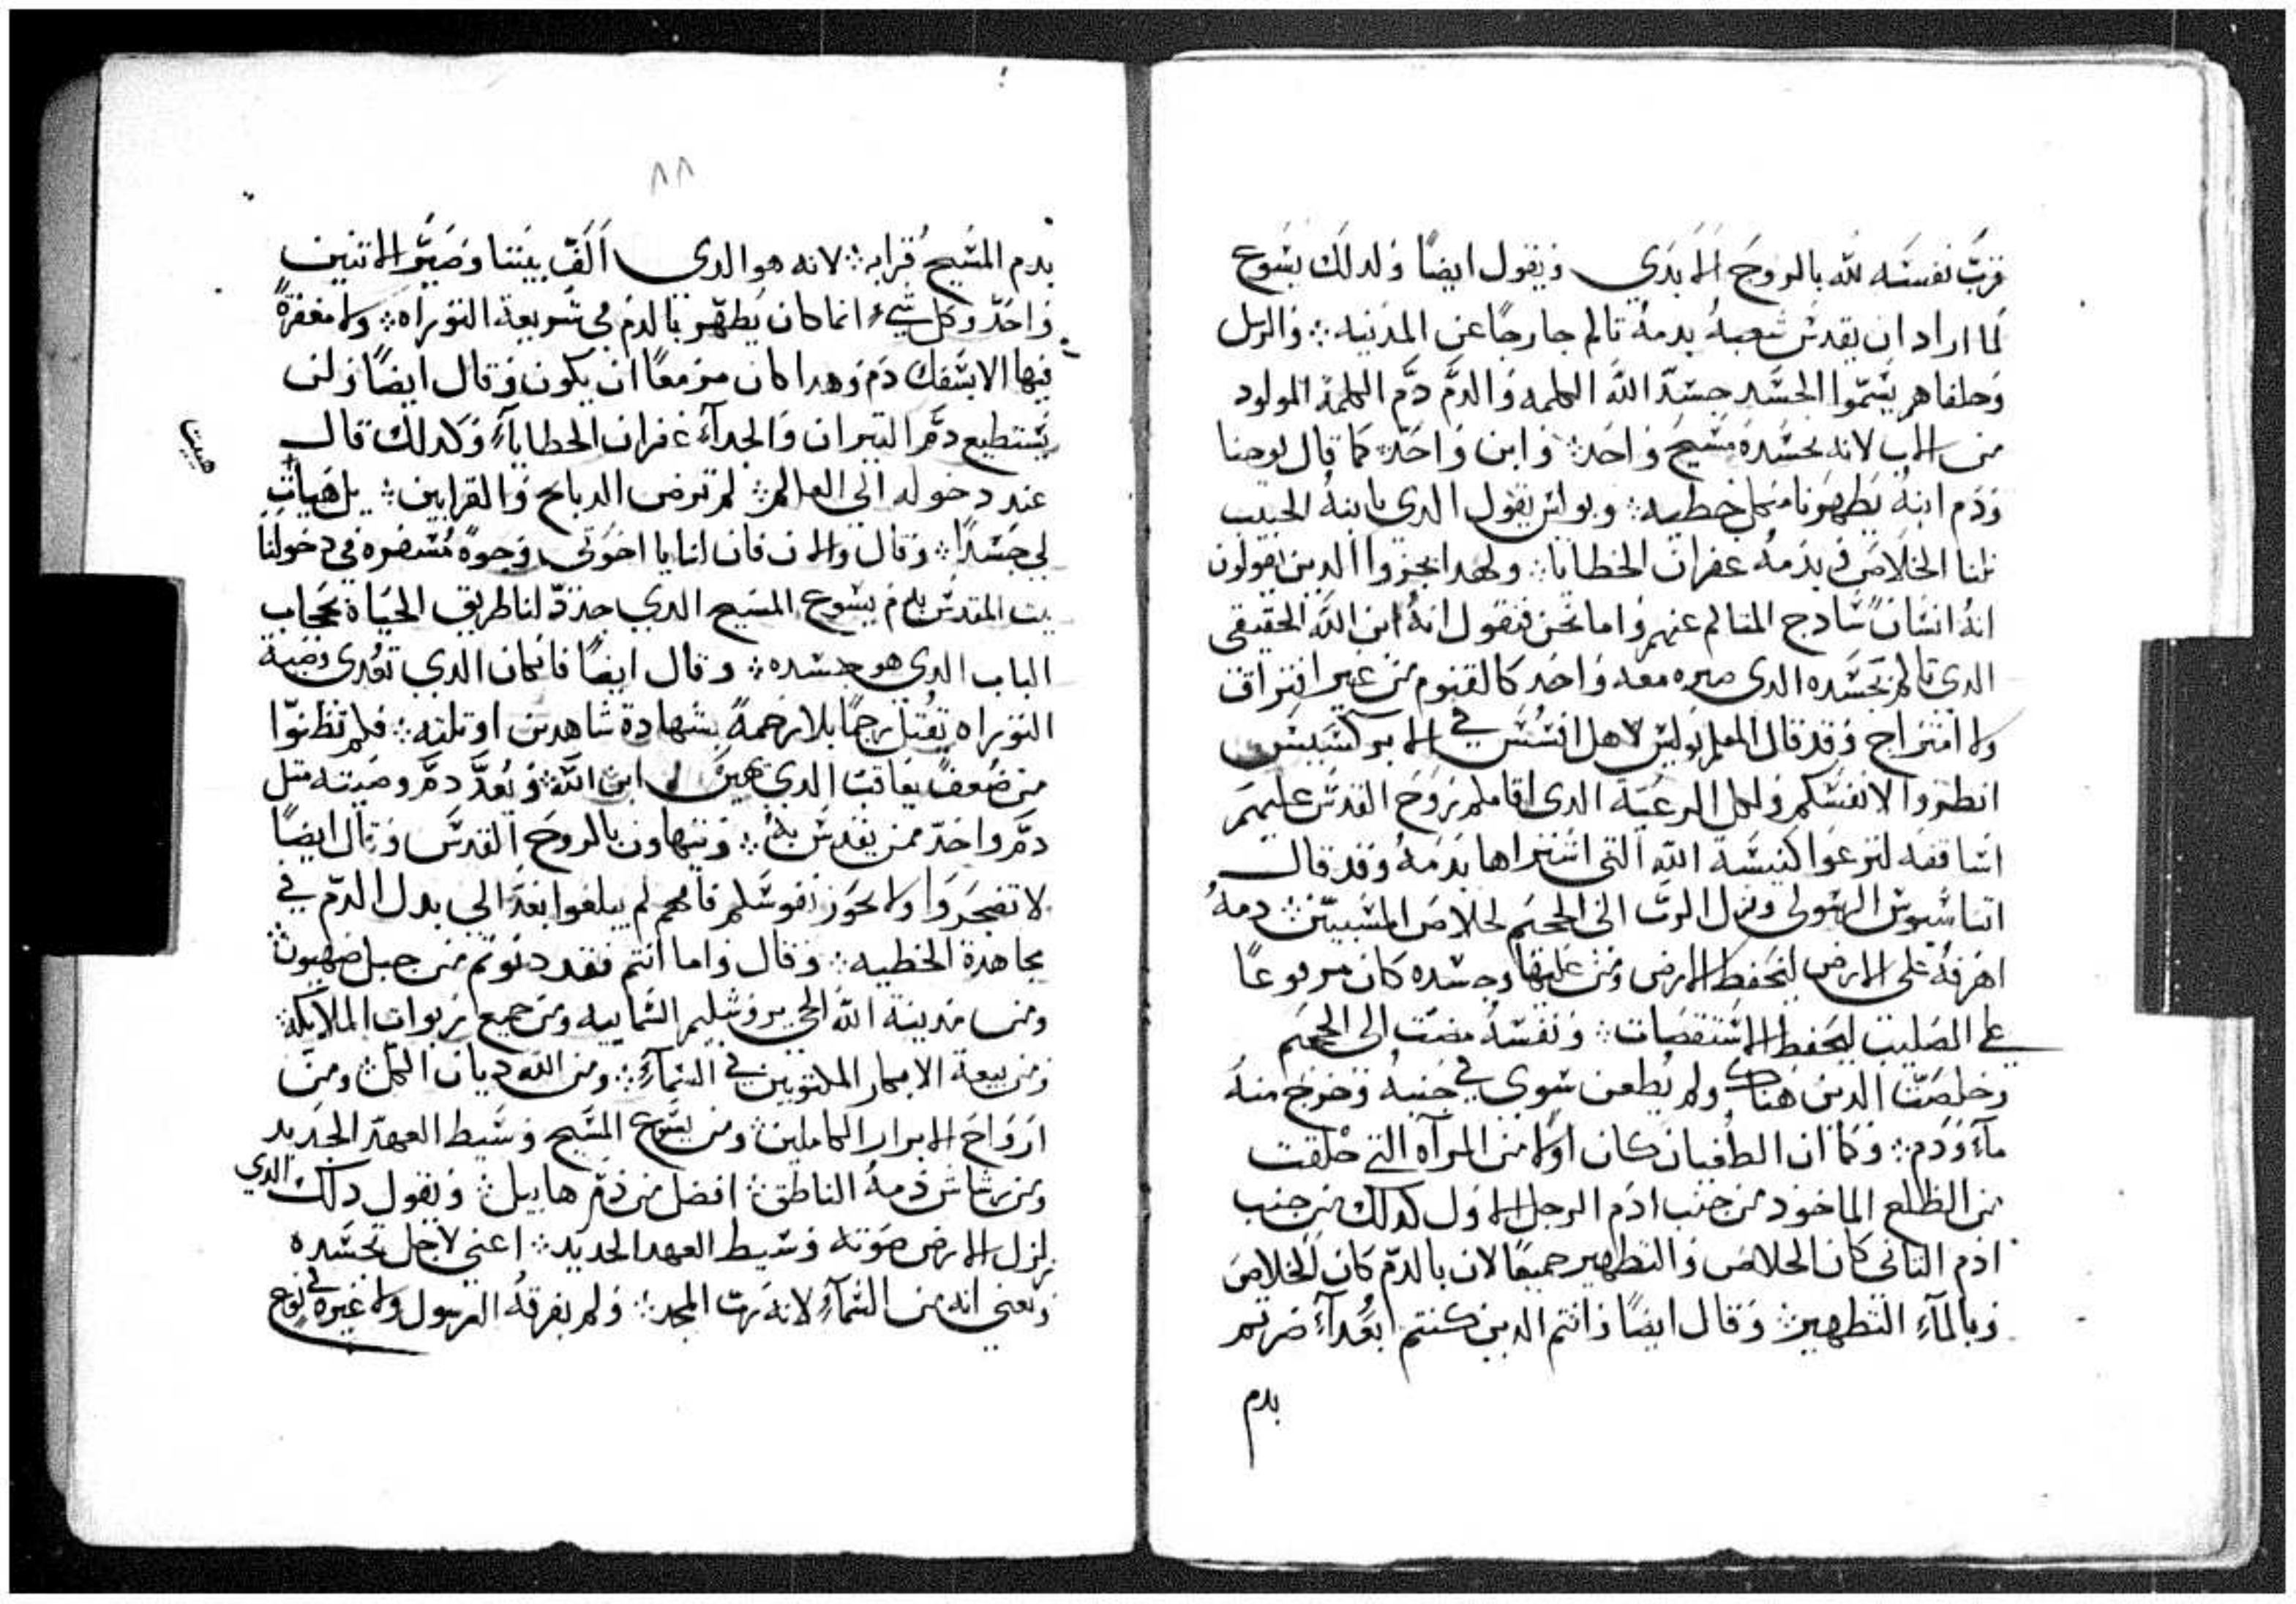 قرب نفسه لله بالروح الابدي ويقول ايضًا ولدلك يسوع
لما اراد ان يقدس شعبه بدمه تالم خارجًا عن المدنيه ܀ والرسل
وخلفاهم يسموا الجسد جسد الله الكلمه والدم دم الكلمة المولود
من الاب لانه بجسده مسيح واحد ܀ وابن واحد ܀ كما قال يوحنا
ودم ابنه يطهرنا من كل خطيه ܀ وبولس يقول الدي بابنه الحبيب
نلنا الخلاص وبدمه غفران الخطايا ܀ ولهدا يخزوا الدين يقولون
انه انسان سادج المتالم عنهم واما نحن فنقول انه ابن الله الحقيقي
الدي تالم بجسده الدي صيره معه واحد كالقنوم من غير افتراق
ولا امتزاج وقد قال المعلم بولس لاهل افسس في الابركسيس
انظروا لانفسكم ولكل الرعية الدي اقامكم روح القدس عليهم
اساقفه لترعوا كنيسة الله التي اشتراها بدمه وقد قال
اتناسيوس الرسولي ونزل الرب الى الجحيم لخلاص المسبيين ܀ دمه
اهرقه على الارض لتحفظ الارض ومن عليها وجسده كان مرفوعًا
على الصليب ليحفظ الاستقصات ܀ ونفسه مضت الى الجحيم
وخلصت الدين هناك ولم يطعن سوى في جنبه وخرج منه
مآء ودم ܀ وكما ان الطغيان كان اولا من المرآه التي خلقت
من الظلع الماخود من جنب ادم الرجل الاول كدلك من جنب
ادم التاني كان الخلاص والتطهير جميعًا لان بالدم كان الخلاص
وبالمآء التطهير ܀ وقال ايضًا وانتم الدين كنتم ابعدآء صرتم
بدم
٨٨
بدم المسيح قرابه ܀ لانه هو الدي الف بيننا وصير الاتنين
واحد وكل شيء انما كان يطهر بالدم في شريعة التوراه ܀ ولا مغفرةً
فيها الا بسفك دم وهدا كان مزمعًا ان يكون وقال ايضًا ولن
يستطيع دم التيران والجدآء غفران الخطايآء وكدلك قال
عند دخوله الى العالم ܀ لم ترض الدبايح والقرابين ܀ بل هيات
هييت
لي جسدًا ܀ وقال والان فان لنا يا اخوتي وجوهً مسفره في دخولنا
بيت المقدس بدم يسوع المسيح الدي جدد لنا طريق الحياة بحجاب
الباب الدي هو جسده ܀ وقال ايضًا فان كان الدي تعدى وصية
التوراه يقتل رجمًا بلا رحمةً بشهادة شاهدين او تلته ܀ فكم تظنوا
من ضعف يعاقب الدي يهين ابن الله ܀ ويعد دم وصيته متل
دم واحد ممن يقدس به ܀ ويتهاون بالروح القدس وقال ايضًا
لا تضجروا ولا تخور نفوسكم فانكم لم يبلغوا بعد الى بدل الدم في
مجاهدة الخطيه ܀ وقال واما انتم فقد دنوتم من جبل صهيون ܀
ومن مدينة الله الحي يروشليم السماييه ومن جميع ربوات الملايكة ܀
ومن بيعة الابكار المكتوبين في السمآء ܀ ومن الله ديان الكل ܀ ومن
ارواح الابرار الكاملين ܀ ومن يسوع المسيح وسيط العهد الجديد
ومن رشاش دمه الناطق ܀ افضل من دم هابيل ܀ ويقول دلك الدي
زلزل الارض صوته وسيط العهد الجديد ܀ اعني لاجل تجسده
ويعني انه من السمآء لانه رب المجد ܀ ولم يفرقه الرسول ولا غيره في نوع